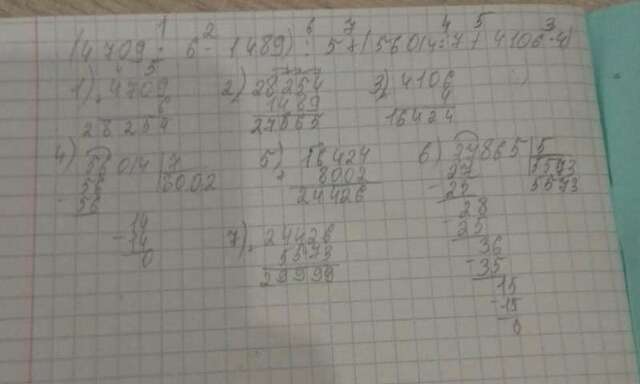 1 2 6 7 4 5 3
(4709 · 6 - 1489) : 5 + (56014 : 7 + 4106 · 4)
1) 4709 2) 28254 3) 4106
6 1489 4
28254 27865 16424
4) 56014 7 5) 16424 6) 27865 5
56 8002 + 8002 27 5573
56 24426 - 25 5573
14 28
- 14 7) 24426 25
0 5573 36
29999 - 35
15
- 15
0